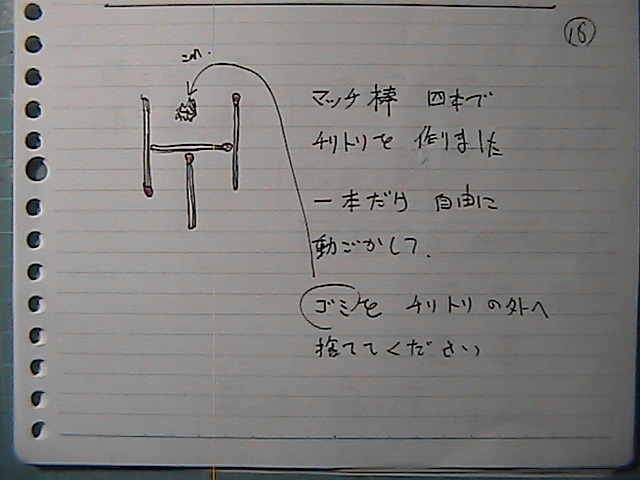 16
これ.
マッチ棒 四本で
チリトリを 作りました
一本だけ 自由に
動ごかして.
ゴミを チリトリの外へ
捨ててください